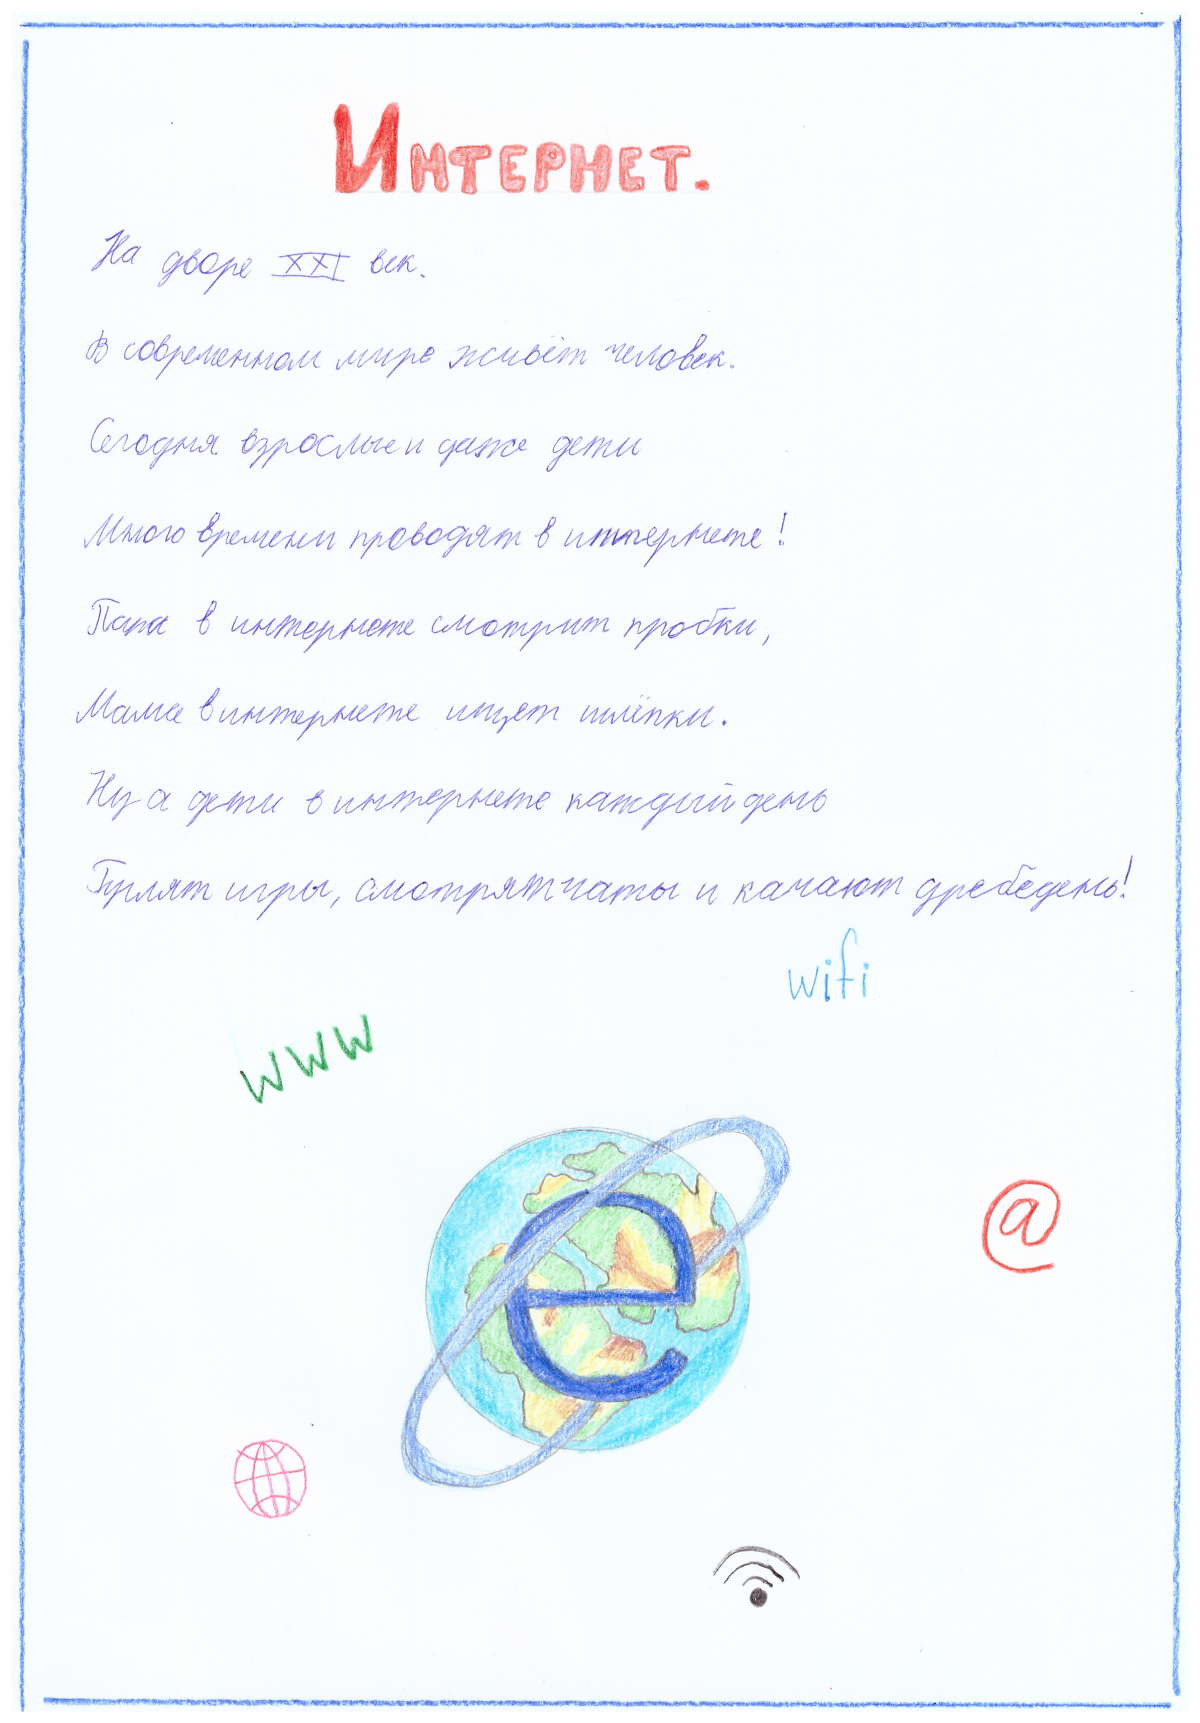 Интернет.
На дворе XXI век.
В современном мире живёт человек.
Сегодня взрослые и даже дети
Много времени проводят в интернете!
Папа в интернете смотрит пробки,
Мама в интернете ищет шлёпки.
Ну а дети в интернете каждый день
Гуглят игры, смотрят чаты и качают дребедень!
wifi
www
@
e